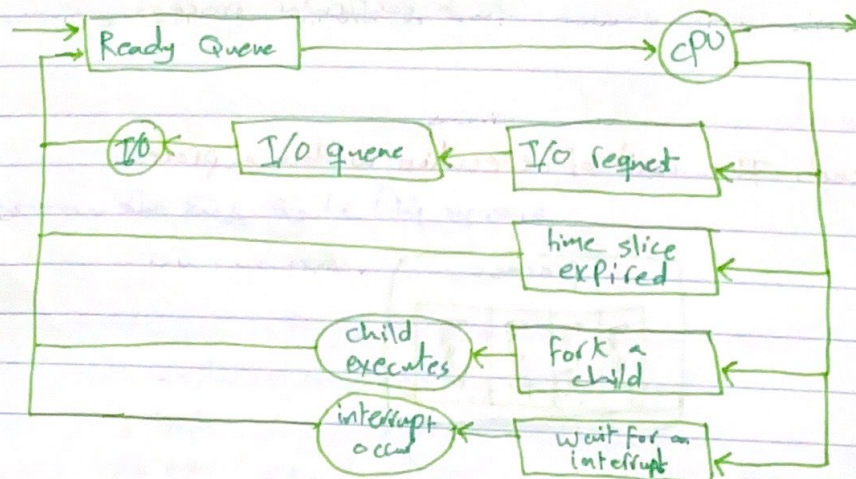 Ready Queue
CPU
I/O
I/O queue
I/O request
time slice
expired
child
executes
fork a
child
interrupt
occur
wait for an
interrupt